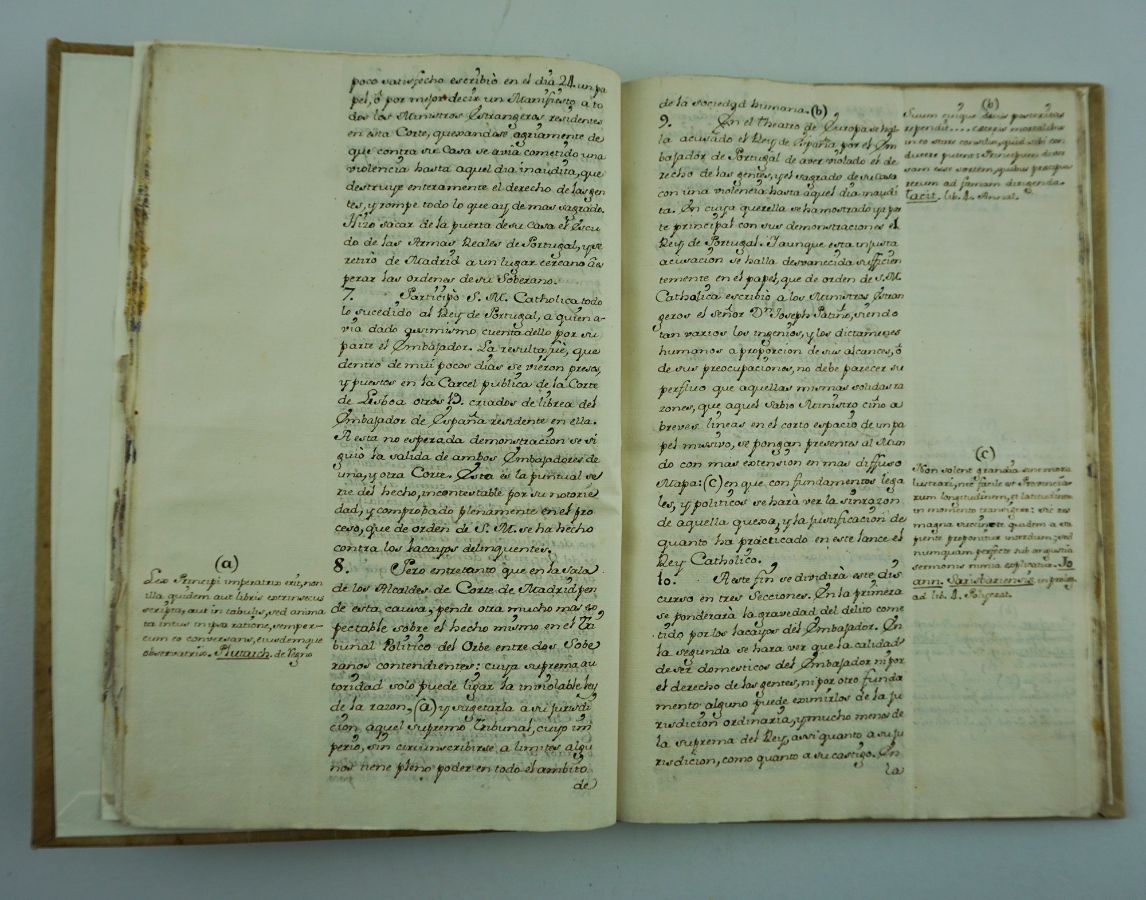 poco satisfecho escribiò en el dia 24. un pa
pel, ò por mejor decir un Manifiesto a to
dos los Ministros Estrangeros residentes
en esta Corte, quexandose agriamente de
que contra su Casa se avia cometido una
violencia hasta aquel dia inaudita, que
destruye enteramente el derecho de las gen
tes, y rompe todo lo que ay de mas sagrado.
Hizo sacar de la puerta de su Casa el Escu
do de las Armas Reales de Portugal, y se
retirò de Madrid a un lugar cercano à es
perar las ordenes de su Soberano.
7. Participò S. M. Catholica todo
lo sucedido al Rey de Portugal, a quien a-
via dado asimismo cuenta dello por su
parte el Embajador. La resulta fuè, que
dentro de mui pocos dias se vieron presos,
y puestos en la Carcel publica de la Corte
de Lisboa otros 13. criados de librea del
Embajador de España residente en ella.
A esta no esperada demonstracion se si
guiò la salida de ambos Embajadores de
una, y otra Corte. Esta es la puntual se
rie del hecho, incontestable por su notorie
dad, y comprobado plenamente en el pro
ceso, que de orden de S. M. se ha hecho
contra los lacayos delinquentes.
8. Pero entretanto que en la Sala
de los Alcaldes de Corte de Madrid pen
de esta causa, pende otra mucho mas es
pectable sobre el hecho mismo en el Tri
bunal Politico del Orbe entre dos Sobe
ranos contendientes: cuya suprema au
toridad solo puede ligar la inviolable ley
de la razon, (a) y sugetarla a su jurisdi
cion aquel supremo Tribunal, cuyo im
perio, sin circunscribirse a limites algu
nos tiene pleno poder en todo el ambito
de
(a)
Lex Principi imperatrix erit, non
illa quidem aut libris extrinsecus
scripta, aut in tabulis, sed anima
ta intus in ipsa ratione, semper-
cum eo conversans, eiusdemque
observatrix. Plutarch. de Regno
de la sociedad humana. (b)
9. En el theatro de Europa se hal
la acusado el Rey de España, por el Em
bajador de Portugal de aver violado el de
recho de las gentes, y el sagrado de su casa
con una violencia hasta aquel dia inaudi
ta. En cuya querella se ha mostrado ya par
te principal con sus demonstraciones el
Rey de Portugal. Y aunque esta injusta
acusacion se halla desvanecida sufficien
temente en el papel, que de orden de S. M.
Catholica escribiò a los Ministros Estran
geros el Señor Dn. Joseph Patiño, siendo
tan varios los ingenios, y los dictamenes
humanos a proporcion de sus alcances, ò
de sus preocupaciones, no debe parecer su
perfluo que aquellas mismas solidas ra
zones, que aquel sabio Ministro ciñò a
breves lineas en el corto espacio de un pa
pel missivo, se pongan presentes al Mun
do con mas extension en mas diffuso
Mapa: (c) en que con fundamentos lega
les, y politicos se harà ver la sinrazon
de aquella quexa, y la justificacion de
quanto ha practicado en este lance el
Rey Catholico.
10. A este fin se dividirà este dis
curso en tres Secciones. En la primera
se ponderarà la gravedad del delito come
tido por los lacayos del Embajador. En
la segunda se hara ver que la calidad
de ser domesticos del Embajador ni por
el derecho de las gentes, ni por otro funda
mento alguno puede eximirlos de la ju
risdicion ordinaria, y mucho menos de
la suprema del Rey, assi quanto a su ju
risdicion, como quanto a su castigo. En
la
(b)
Suum cuique decus posteritas
rependit.... ceteris mortalibus
in eo stare consilia, quid sibi con
ducere putent: Principum diver
sam esse sortem, quibus præcipua
rerum ad famam dirigenda.
Tacit. lib. 4. Annal.
(c)
Non solent grandia sine mora
lustrari, nec facile est Provincia
rum longitudinem, et latitudinem
in momento transigere: sic res
magna succincte quidem
proponitur interdum; sed
numquam perfecte sub angustia
sermonis nimia explicatur. Jo
ann. Sarisbariensis in prolog.
ad lib. 4. Polycrat.